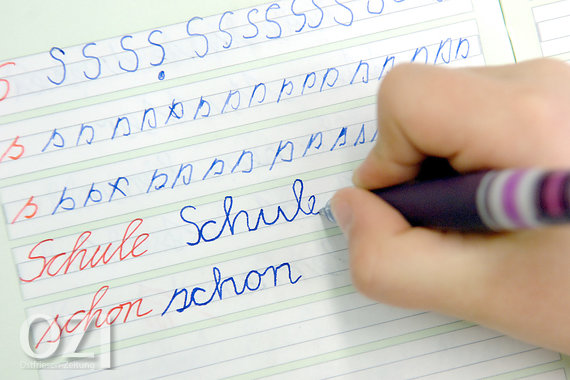 S S S S S S S S S S S S S
s s s s s s s s s s s s s s s s s
s s s s s s s s s s s s
Schule Schule
schon schon
OZ
Ostfriesen-Zeitung